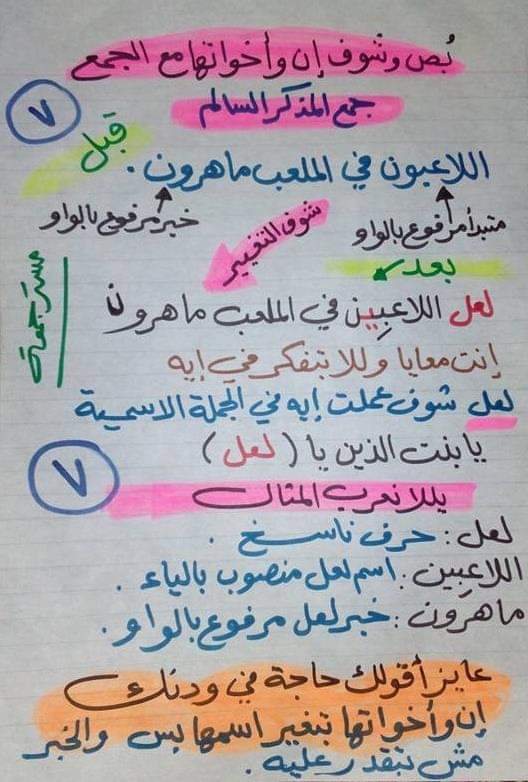 بُص وشوف إن وأخواتها مع الجمع
جمع المذكر السالم
٧
قبل
اللاعبون في الملعب ماهرون.
مبتدأ مرفوع بالواو
خبر مرفوع بالواو
شوف التغيير
بعد
مستر جمعة
لعل اللاعبِين في الملعب ماهرون
إنت معايا وللا بتفكر في إيه
لعل شوف عملت إيه في الجملة الاسمية
يا بنت الذين يا (لعل)
٧
يللا نعرب المثال
لعل: حرف ناسخ.
اللاعبِين: اسم لعل منصوب بالياء.
ماهرون: خبر لعل مرفوع بالواو.
عايز أقولك حاجة في ودنك
إن وأخواتها بتغير اسمها بس والخبر
مش بتقدر عليه.